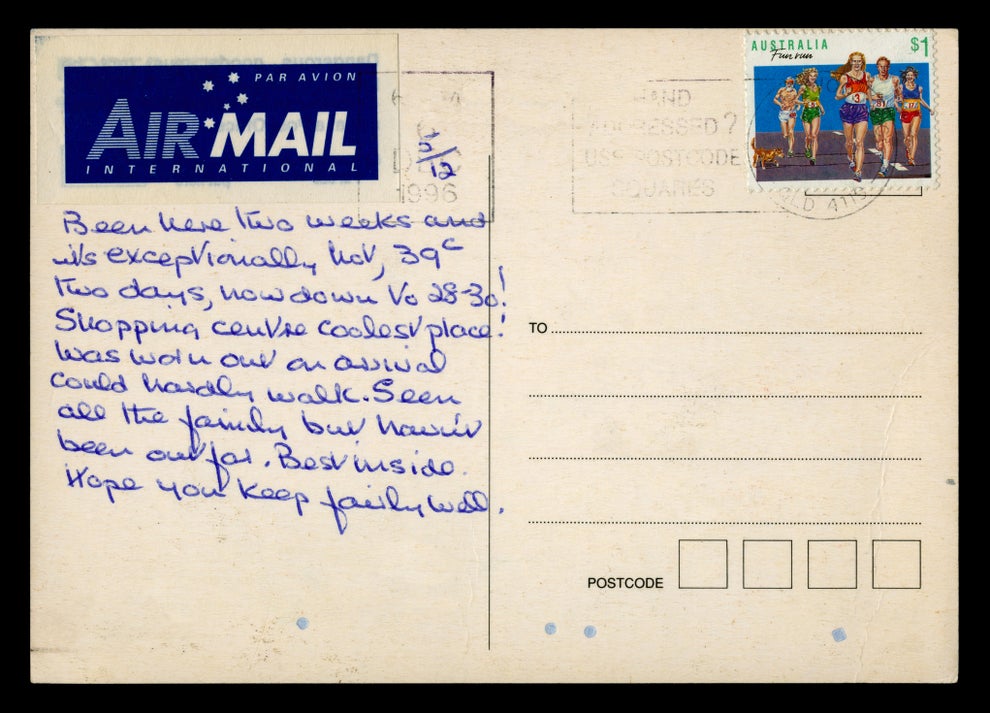 PAR AVION
AIR MAIL
INTERNATIONAL
DEC
1996
5/12
HAND
ADDRESSED?
USE POSTCODE
SQUARES
AUSTRALIA
$1
Fun run
3
QLD 411
Been here two weeks and
its exceptionally hot, 39c
two days, now down to 28-30!
Shopping centre coolest place!
Was worn out on arrival
could hardly walk. Seen
all the family but haven't
been out far. Best inside.
Hope you keep fairly well.
TO
POSTCODE